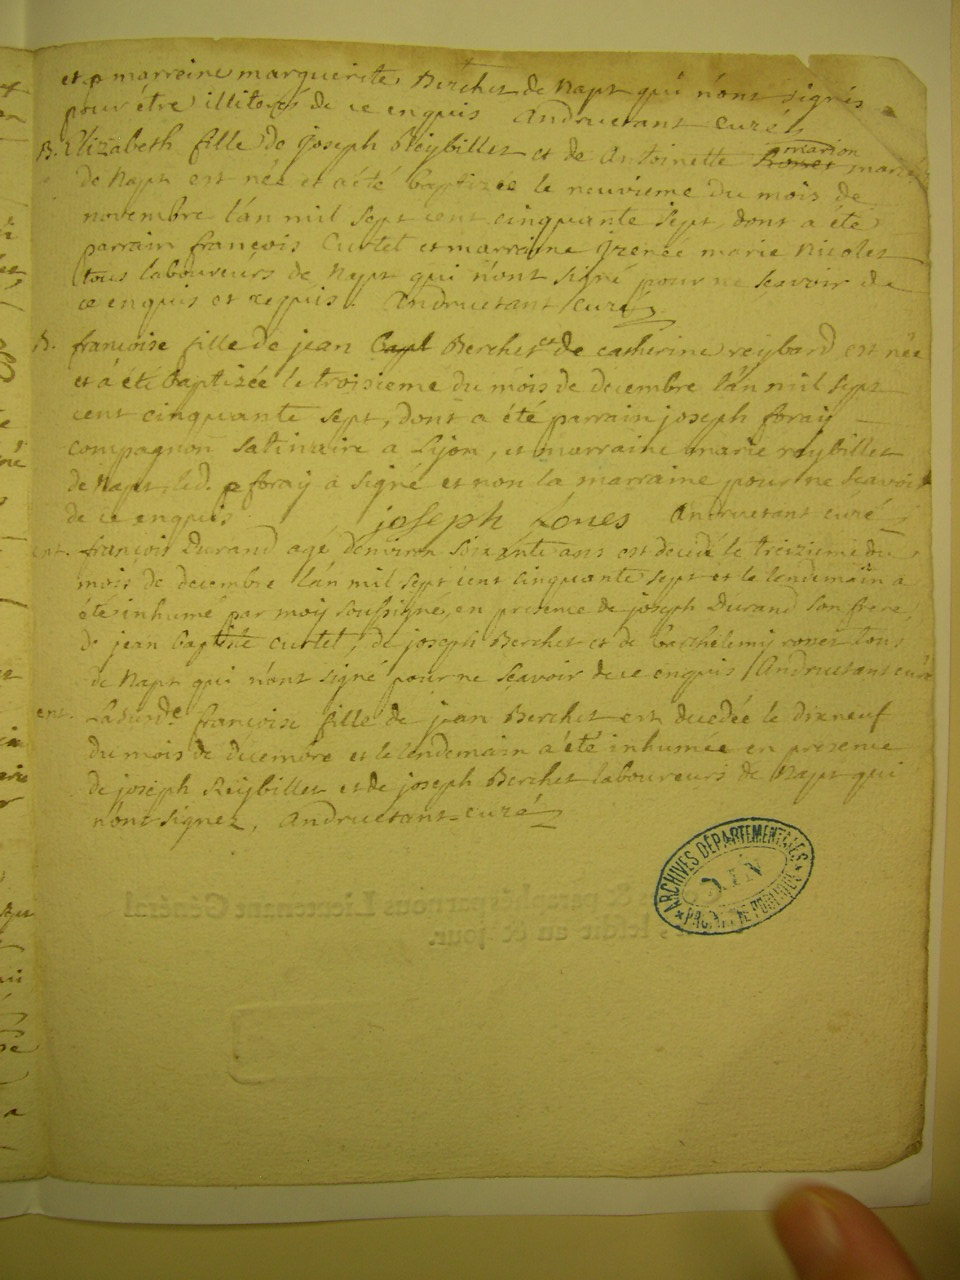 et marreine marguerite Berchet de Napt qui n'ont signés
pour être illiterés de ce enquis Andruetant curé
B. Elizabeth fille de joseph Reÿbillet et de Antoinette marion
de Napt est née et a été baptizée le neuvieme du mois de
novembre l'an mil sept cent cinquante sept, dont a été
parrain françois Curtet et marraine jrenée marie Nicolet
tous laboureurs de Napt qui n'ont signé pour ne scavoir de
ce enquis et requis. Andruetant curé
B. françoise fille de jean Berchet et de catherine reybard est née
et a été baptizée le troisieme du mois de decembre l'an mil sept
cent cinquante sept, dont a été parrain joseph foraÿ
compagnon satinaire a Lÿon, et marraine marie reybillet
de Napt, led. foraÿ a signé et non la marraine pour ne scavoir
de ce enquis joseph Andruetant curé
ent. françois Durand agé d'environ soixante ans est decedé le treizieme du
mois de decembre l'an mil sept cent cinquante sept et le lendemain a
été inhumé par moÿ soussigné, en presence de joseph Durand son frere,
de jean baptiste Curtet, de joseph Berchet et de barthelemÿ tous
de Napt qui n'ont signé pour ne scavoir de ce enquis Andruetant curé
ent. Ladite. françoise fille de jean Berchet est decedée le dixneuf
du mois de decembre et le lendemain a été inhumée en presence
de joseph Reÿbillet et de joseph Berchet laboureurs de Napt qui
n'ont signez, Andruetant curé
ARCHIVES DÉPARTEMENTALES
AIN
& paraphé par nous Lieutenant Général
au 8e jour.